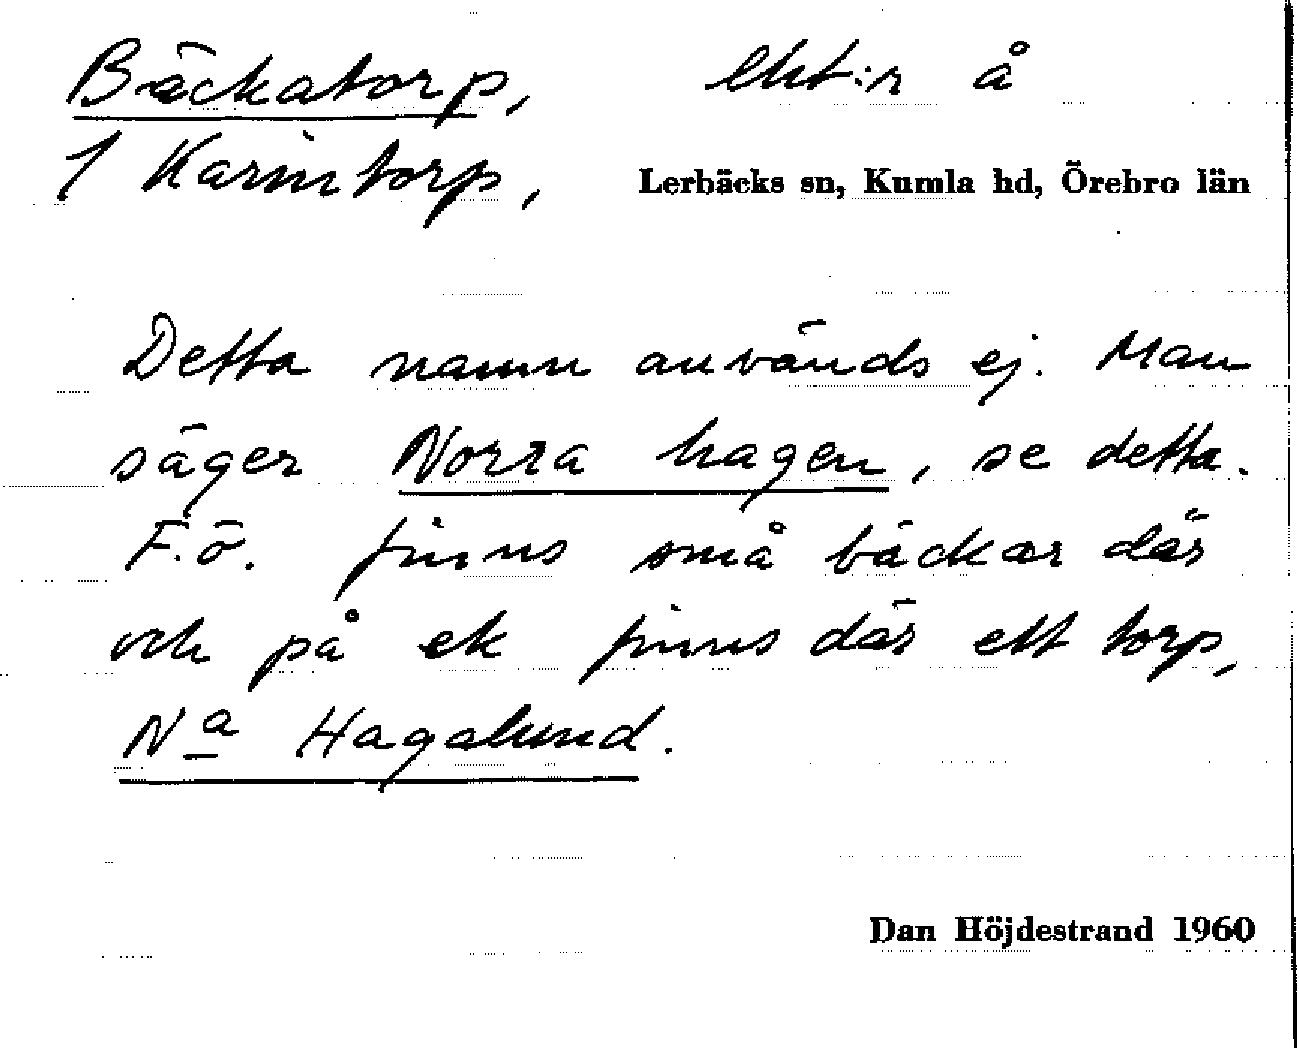 Bäckatorp, lht:r å
1 Karintorp, Lerbäcks sn, Kumla hd, Örebro län
Detta namn används ej. Man
säger Norra hagen, se detta.
F.ö. finns små bäckar där
och på ek finns där ett torp,
Na Hagalund.
Dan Höjdestrand 1960